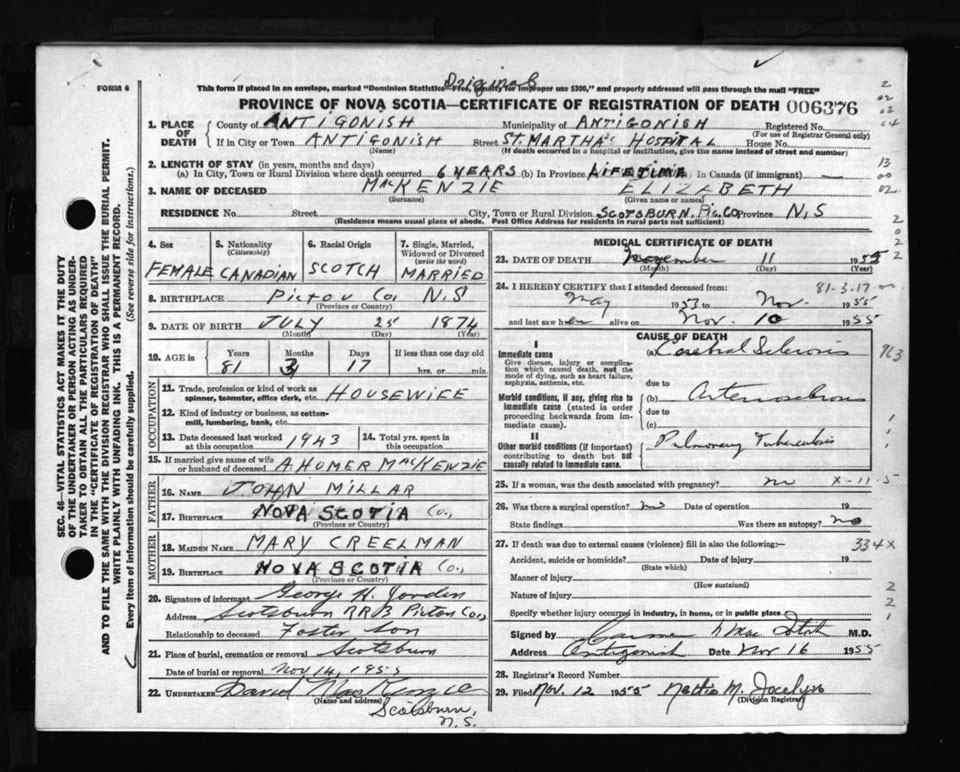 Original
FORM 6
This form if placed in an envelope, marked "Dominion Statistics—Free, penalty for improper use $300," and properly addressed will pass through the mail "FREE"
PROVINCE OF NOVA SCOTIA—CERTIFICATE OF REGISTRATION OF DEATH 006376
1. PLACE OF DEATH
County of ANTIGONISH Municipality of ANTIGONISH Registered No.
(For use of Registrar General only)
If in City or Town ANTIGONISH Street ST. MARTHA'S HOSPITAL House No.
(Name) (If death occurred in a hospital or institution, give the name instead of street and number)
2. LENGTH OF STAY (in years, months and days)
(a) In City, Town or Rural Division where death occurred 6 YEARS (b) In Province LIFETIME In Canada (if immigrant) —
3. NAME OF DECEASED MacKENZIE ELIZABETH
(Surname) (Given name or names)
RESIDENCE No. Street City, Town or Rural Division SCOTSBURN, Pic. CO Province N.S
(Residence means usual place of abode. Post Office Address for residents in rural parts not sufficient)
4. Sex
FEMALE
5. Nationality (Citizenship)
CANADIAN
6. Racial Origin
SCOTCH
7. Single, Married, Widowed or Divorced (write the word)
MARRIED
8. BIRTHPLACE Pictou Co N.S
(Province or Country)
9. DATE OF BIRTH JULY 25 1874
(Month) (Day) (Year)
10. AGE in Years Months Days If less than one day old
81 3 17 hrs. or min.
OCCUPATION
11. Trade, profession or kind of work as spinner, teamster, office clerk, etc. HOUSEWIFE
12. Kind of industry or business, as cotton-mill, lumbering, bank, etc.
13. Date deceased last worked at this occupation 1943
14. Total yrs. spent in this occupation
15. If married give name of wife or husband of deceased A. HOMER MacKENZIE
FATHER
16. NAME JOHN MILLAR
17. BIRTHPLACE NOVA SCOTIA Co.,
(Province or Country)
MOTHER
18. MAIDEN NAME MARY CREELMAN
19. BIRTHPLACE NOVA SCOTIA Co.,
(Province or Country)
20. Signature of informant George H.
Address Scotsburn RR3 Pictou Co.
Relationship to deceased Foster Son
21. Place of burial, cremation or removal Scotsburn
Date of burial or removal Nov 14, 1955
22. UNDERTAKER David MacKenzie
(Name and address)
Scotsburn,
N.S.
MEDICAL CERTIFICATE OF DEATH
23. DATE OF DEATH November 11 1955
(Month) (Day) (Year)
24. I HEREBY CERTIFY that I attended deceased from: 81-3-17
May 1953 to Nov. 1955
and last saw her alive on Nov. 10 1955
CAUSE OF DEATH
I
Immediate cause
Give disease, injury or complication which caused death, not the mode of dying, such as heart failure, asphyxia, asthenia, etc.
(a) Cerebral Sclerosis
due to
Morbid conditions, if any, giving rise to immediate cause (stated in order proceeding backwards from immediate cause).
(b) Arteriosclerosis
due to
(c)
II
Other morbid conditions (if important) contributing to death but not causally related to immediate cause.
Pulmonary Tuberculosis
25. If a woman, was the death associated with pregnancy? no X-11-5
26. Was there a surgical operation? no Date of operation 19
State findings Was there an autopsy? no
27. If death was due to external causes (violence) fill in also the following:— 334X
Accident, suicide or homicide? Date of injury 19
(State which)
Manner of injury
(How sustained)
Nature of injury
Specify whether injury occurred in industry, in home, or in public place
Signed by M.D.
Address Antigonish Date Nov 16 1955
28. Registrar's Record Number
29. Filed Nov. 12 1955 Nettie M. Jocelyn
(Division Registrar)
SEC. 46—VITAL STATISTICS ACT MAKES IT THE DUTY
OF THE UNDERTAKER OR PERSON ACTING AS UNDERTAKER
TO OBTAIN ALL THE PARTICULARS REQUIRED
IN THE "CERTIFICATE OF REGISTRATION OF DEATH"
AND TO FILE THE SAME WITH THE DIVISION REGISTRAR WHO SHALL ISSUE THE BURIAL PERMIT.
WRITE PLAINLY WITH UNFADING INK. THIS IS A PERMANENT RECORD.
Every item of information should be carefully supplied. (See reverse side for instructions.)